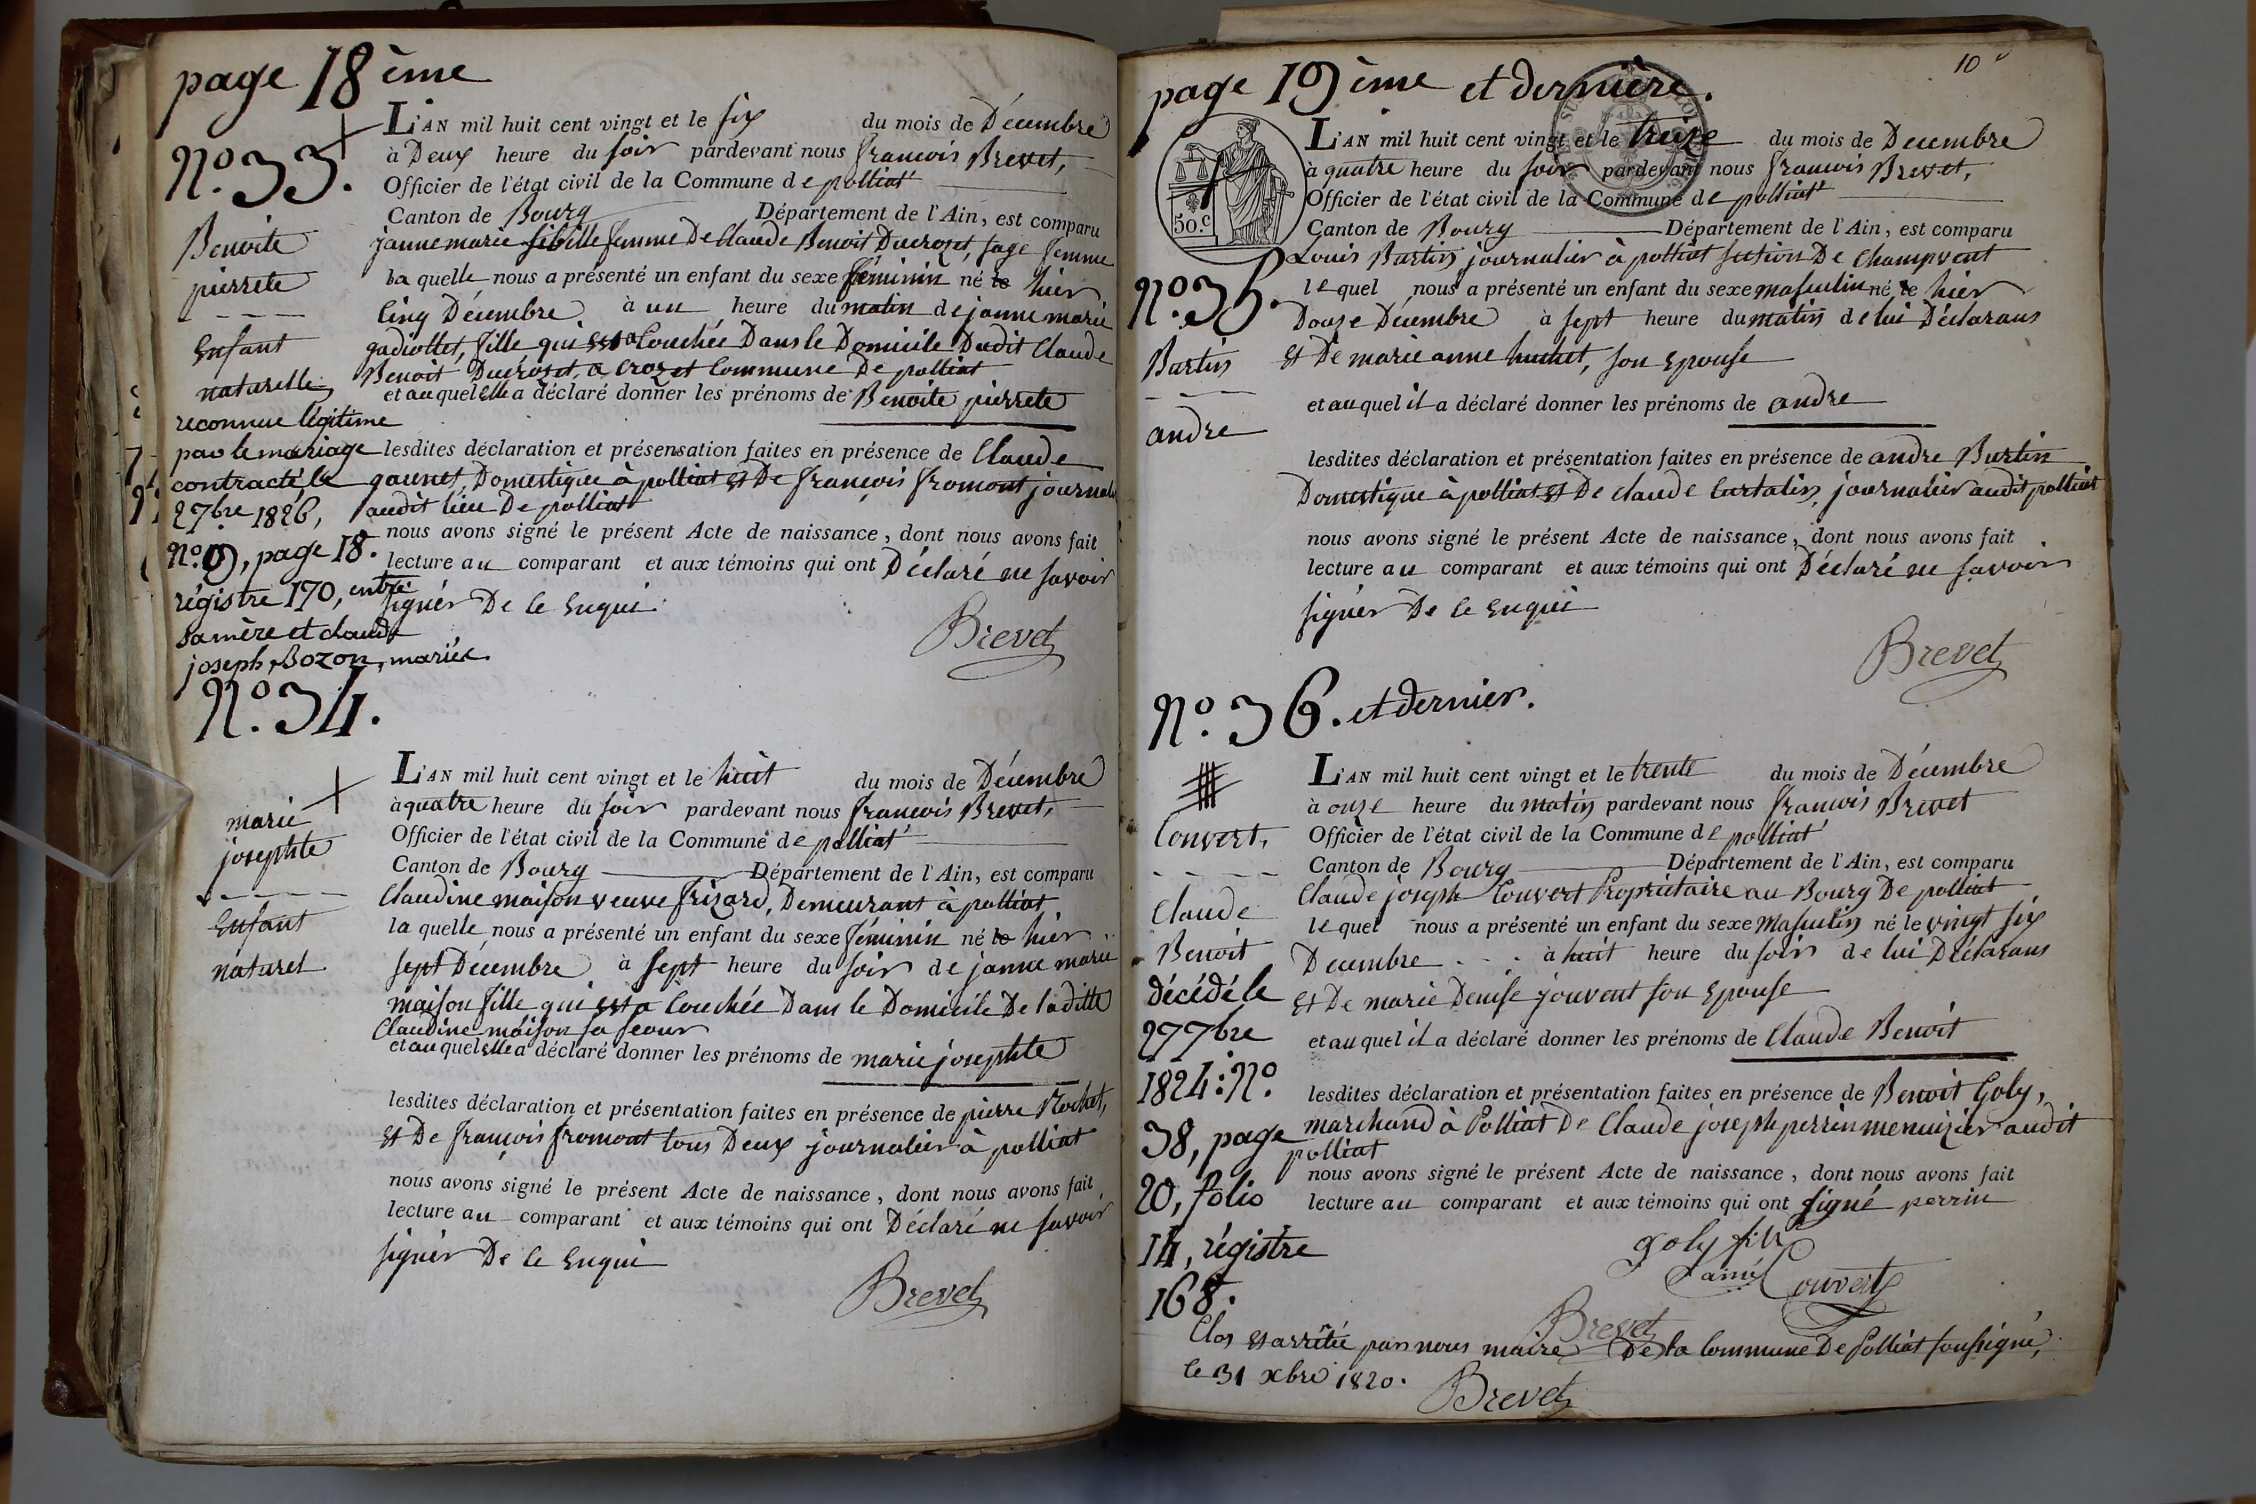 page 18 ème
N.o 33.
L'AN mil huit cent vingt et le six du mois de Décembre
à Deux heure du soir pardevant nous francois Brevet,
Officier de l'état civil de la Commune de polliat
Canton de Bourg Département de l'Ain, est comparu
janne marie sibille femme De Claude Benoit Ducrozet, sage femme
la quelle nous a présenté un enfant du sexe féminin né le hier
Cinq Décembre à un heure du matin de janne marie
gadiollet, fille qui est a Couchée Dans le Domicile Dudit Claude
Benoit Ducrozet, a crozet Commune De polliat
et au quel elle a déclaré donner les prénoms de Benoite pierrete
lesdites déclaration et présensation faites en présence de Claude
gaunet, Domestique à polliat et De françois fromont journal
audit lieu De polliat
nous avons signé le présent Acte de naissance, dont nous avons fait
lecture au comparant et aux témoins qui ont Déclaré ne savoir
signér De ce Enqui
Brevet
Benoite
pierrete
Enfant
naturelle
reconnue légitime
par le mariage
contracté le
2 7bre 1826,
N.o 9, page 18.
régistre 170, entre
sa mère et claude
joseph Bozon, mariés.
N.o 34.
L'AN mil huit cent vingt et le huit du mois de Décembre
à quatre heure du soir pardevant nous francois Brevet,
Officier de l'état civil de la Commune de polliat
Canton de Bourg Département de l'Ain, est comparu
Claudine maison veuve frizard, Demeurant à polliat
la quelle nous a présenté un enfant du sexe féminin né le hier
sept Décembre à sept heure du soir de janne marie
maison fille qui est a Couchée Dans le Domicile De laditte
Claudine maison sa seour
et au quel elle a déclaré donner les prénoms de marie josephte
lesdites déclaration et présentation faites en présence de pierre Rochet,
et De françois fromont tous Deux journalier à polliat
nous avons signé le présent Acte de naissance, dont nous avons fait
lecture au comparant et aux témoins qui ont Déclaré ne savoir
signér De ce Enqui
Brevet
marie
josephte
Enfant
naturel
page 19 ème et dernière.
10
50.c
L'AN mil huit cent vingt et le treize du mois de Decembre
à quatre heure du soir pardevant nous francois Brevet,
Officier de l'état civil de la Commune de polliat
Canton de Bourg Département de l'Ain, est comparu
Louis Burtin journalier à polliat section De Champvent
le quel nous a présenté un enfant du sexe masculin né le hier
Douze Décembre à sept heure du matin de lui Déclarans
et De marie anne huchet, son Epouse
et au quel il a déclaré donner les prénoms de andre
lesdites déclaration et présentation faites en présence de andre Burtin
Domestique à polliat et De claude Curtalin, journalier audit polliat
nous avons signé le présent Acte de naissance, dont nous avons fait
lecture au comparant et aux témoins qui ont Déclaré ne savoir
signér De ce Enqui
Brevet
N.o 35.
Burtin
andre
N.o 36. et dernier.
L'AN mil huit cent vingt et le trente du mois de Décembre
à onze heure du matin pardevant nous francois Brevet
Officier de l'état civil de la Commune de polliat
Canton de Bourg Département de l'Ain, est comparu
Claude joseph Convert Propriétaire au Bourg De polliat
le quel nous a présenté un enfant du sexe Masculin né le vingt six
Decembre à huit heure du soir de lui Déclarans
et De marie Denise jouvent son Epouse
et au quel il a déclaré donner les prénoms de Claude Benoit
lesdites déclaration et présentation faites en présence de Benoit Goly,
marchand à Polliat De Claude joseph perrin menuizier audit
polliat
nous avons signé le présent Acte de naissance, dont nous avons fait
lecture au comparant et aux témoins qui ont signé perrin
goly fils
ainé Convert
Brevet
Convert,
Claude
Benoit
décédé le
27 7bre
1824: N.o
38, page
20, folio
14, régistre
168.
Clos et arrêtée par nous maire De la Commune De Polliat soussigné,
le 31 xbre 1820.
Brevet